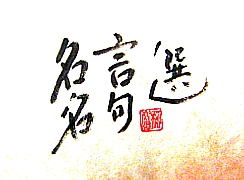 名言名句選